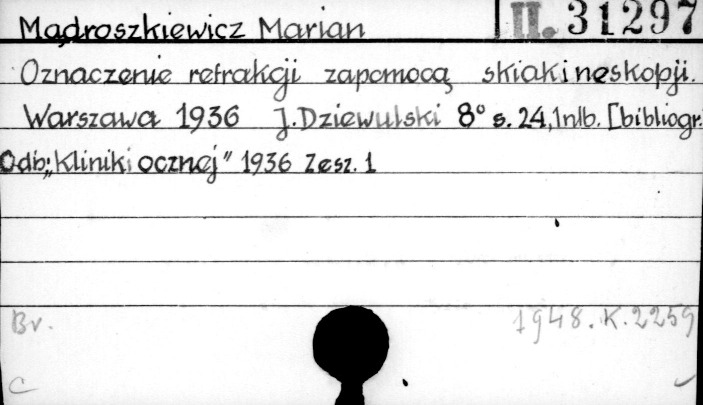 Mądroszkiewicz Marian II. 31297
Oznaczenie refrakcji zapomocą skiakineskopji.
Warszawa 1936 J. Dziewulski 8° s. 24, 1nlb. [bibliogr.
Odb: "Kliniki ocznej" 1936 Zesz. 1
Br. 1948. K. 2259
C